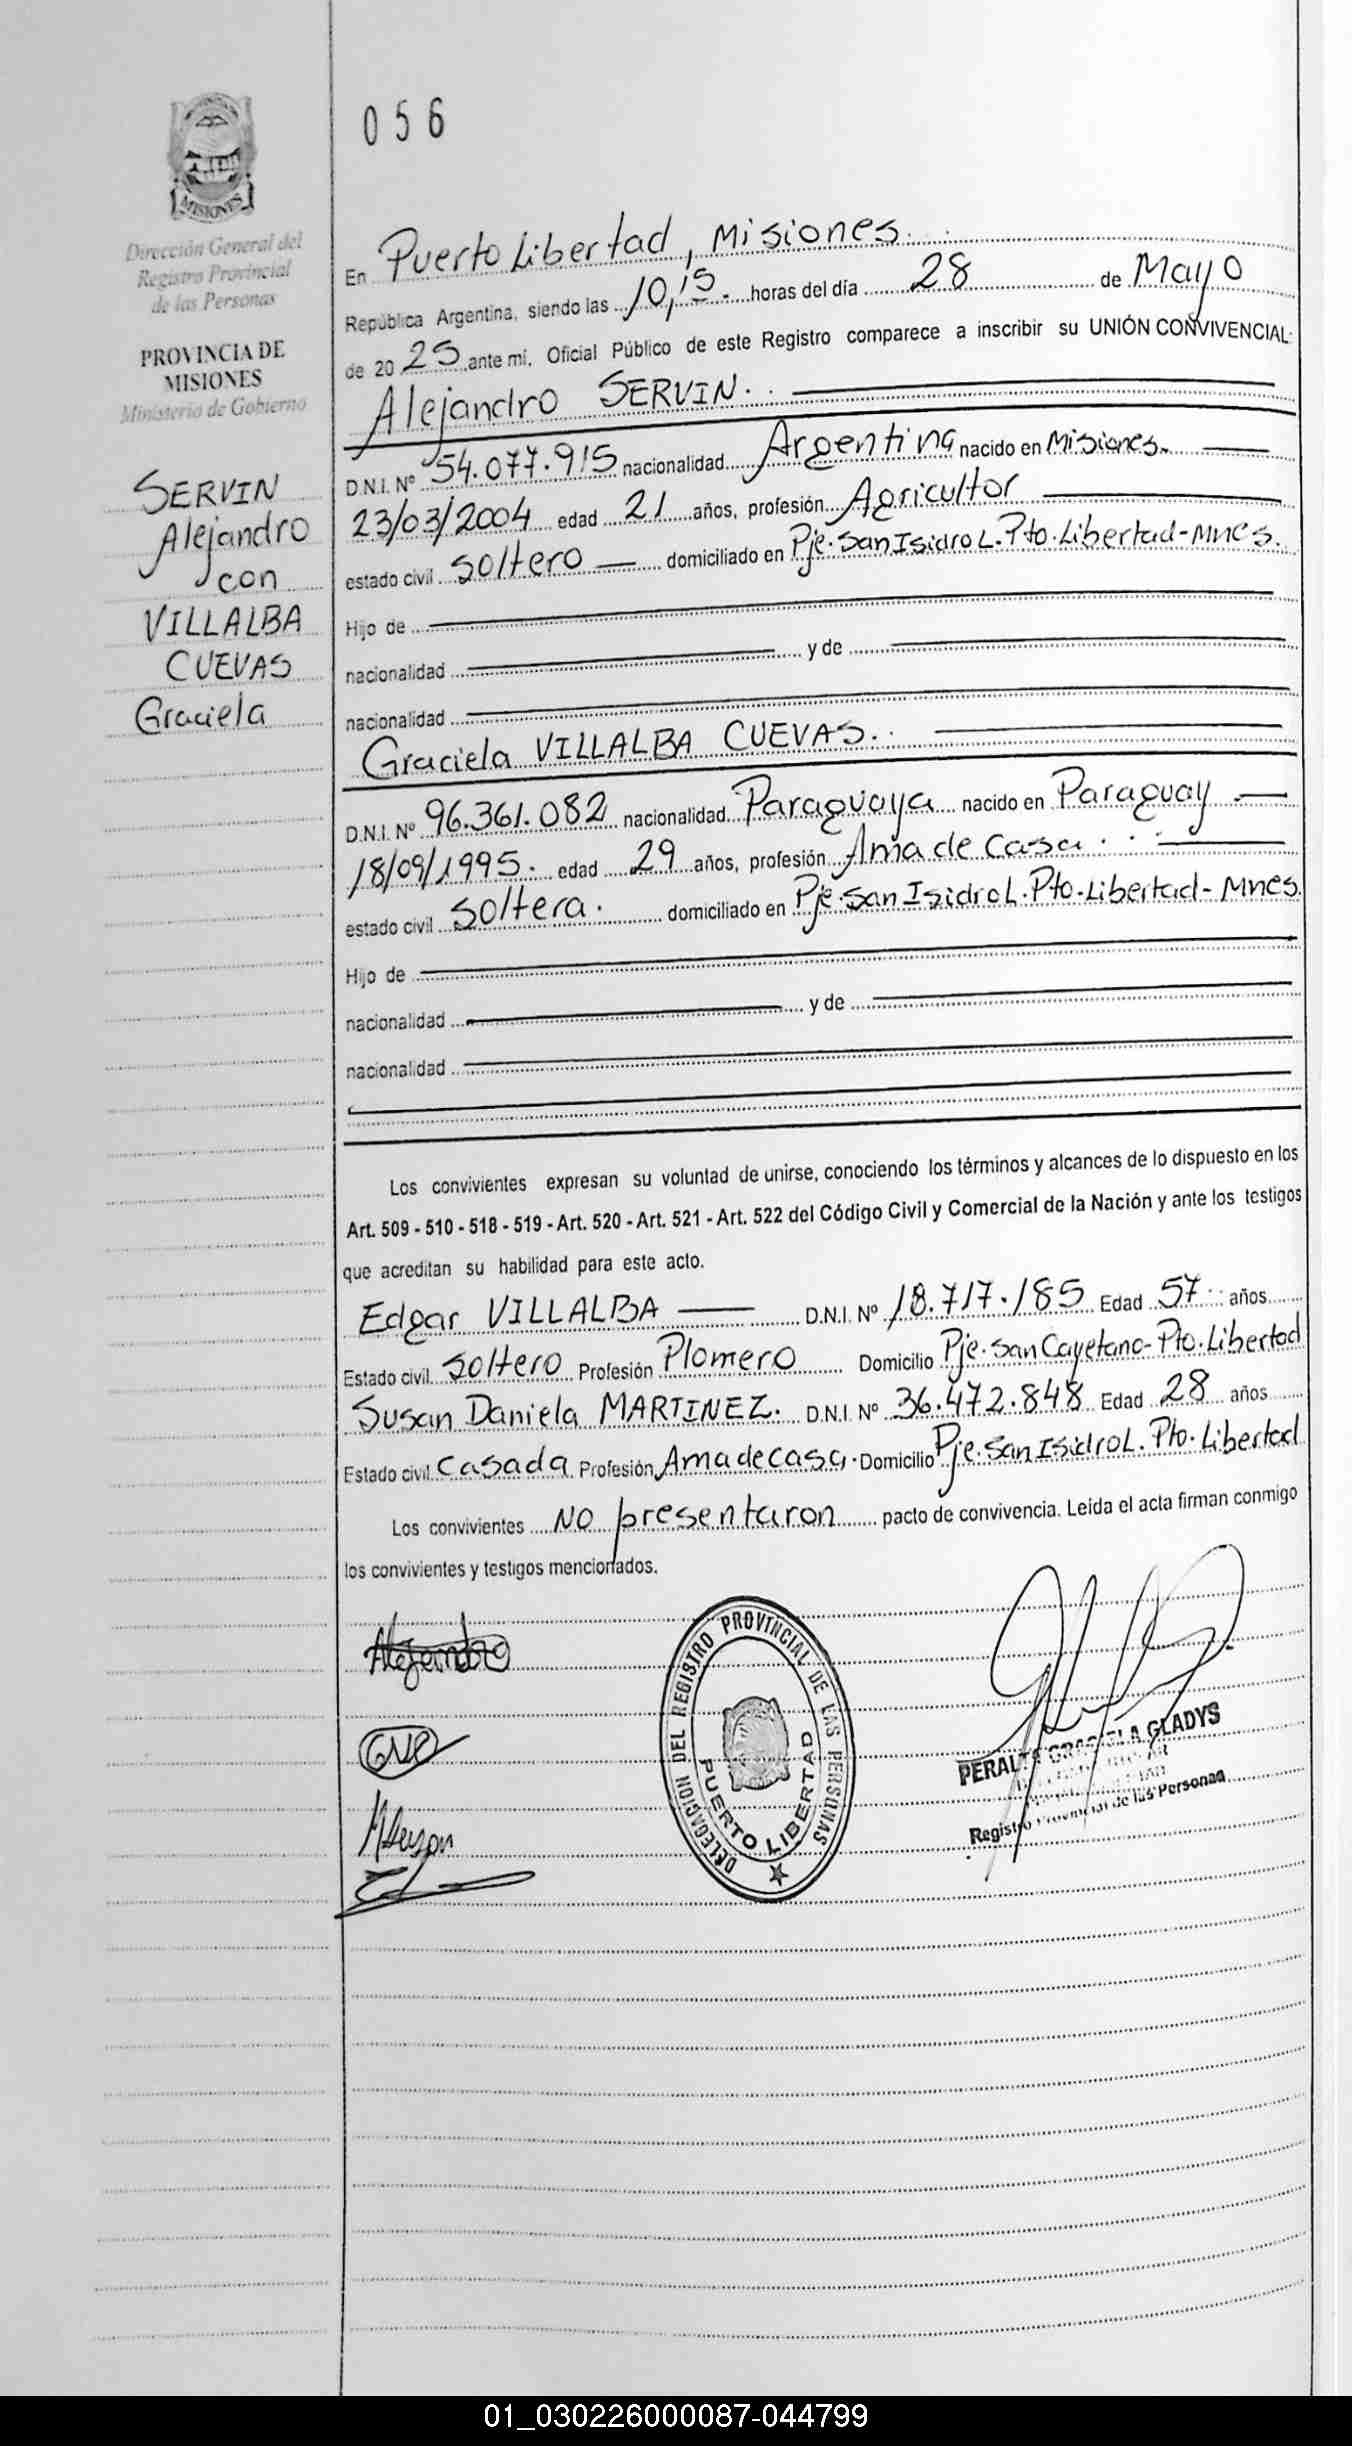 056
MISIONES
Dirección General del
Registro Provincial
de las Personas
PROVINCIA DE
MISIONES
Ministerio de Gobierno
SERVIN
Alejandro
con
VILLALBA
CUEVAS
Graciela
En Puerto Libertad, Misiones.
República Argentina, siendo las 10,15 horas del día 28 de Mayo
de 2025 ante mi, Oficial Público de este Registro comparece a inscribir su UNIÓN CONVIVENCIAL:
Alejandro SERVIN.
D.N.I. Nº 54.077.915 nacionalidad Argentina nacido en Misiones.
23/03/2004 edad 21 años, profesión Agricultor
estado civil soltero domiciliado en Pje. San Isidro L. Pto. Libertad-Mnes.
Hijo de
nacionalidad y de
nacionalidad
Graciela VILLALBA CUEVAS.
D.N.I. Nº 96.361.082 nacionalidad Paraguaya nacido en Paraguay
18/09/1995. edad 29 años, profesión Ama de casa.
estado civil soltera. domiciliado en Pje. San Isidro L. Pto. Libertad-Mnes.
Hijo de
nacionalidad y de
nacionalidad
Los convivientes expresan su voluntad de unirse, conociendo los términos y alcances de lo dispuesto en los
Art. 509 - 510 - 518 - 519 - Art. 520 - Art. 521 - Art. 522 del Código Civil y Comercial de la Nación y ante los testigos
que acreditan su habilidad para este acto.
Edgar VILLALBA D.N.I. Nº 18.717.185 Edad 57 años
Estado civil soltero Profesión Plomero Domicilio Pje. San Cayetano-Pto. Libertad
Susan Daniela MARTINEZ. D.N.I. Nº 36.472.848 Edad 28 años
Estado civil casada Profesión Ama de casa. Domicilio Pje. San Isidro L. Pto. Libertad
Los convivientes NO presentaron pacto de convivencia. Leida el acta firman conmigo
los convivientes y testigos mencionados.
Alejandro
DELEGACION DEL REGISTRO PROVINCIAL DE LAS PERSONAS
PUERTO LIBERTAD
PERALTA GRACIELA GLADYS
Registro Provincial de las Personas
01_030226000087-044799